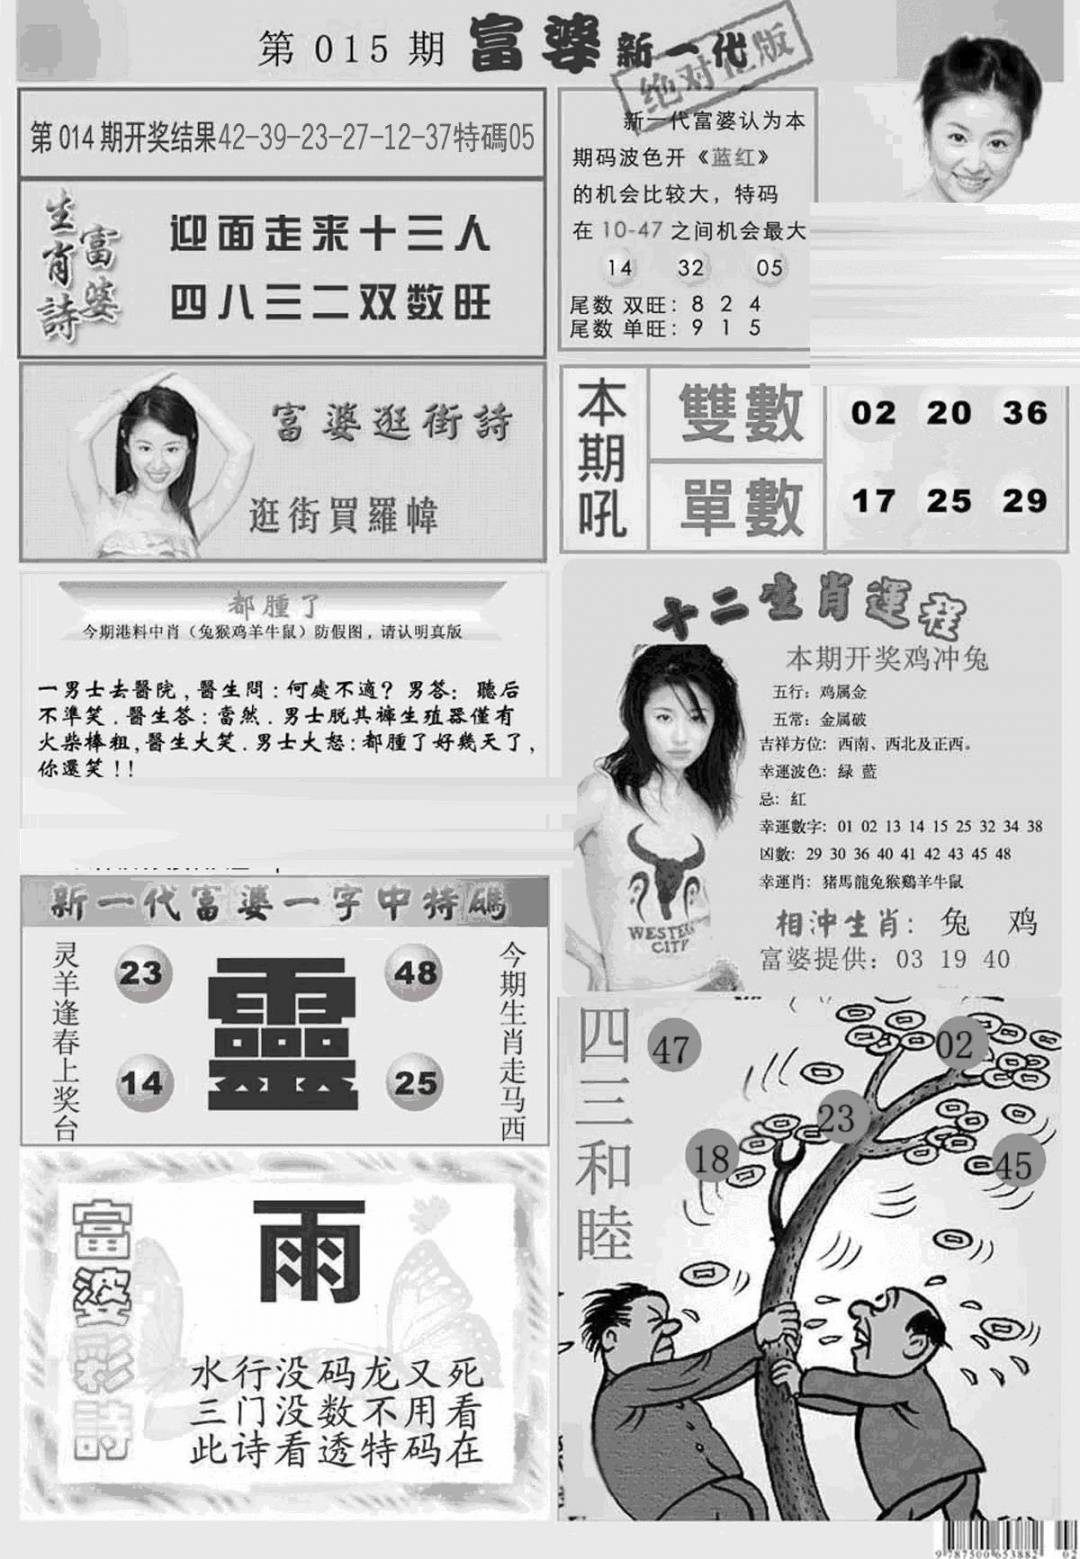 第015期 富婆新一代
绝对正版
第014期开奖结果42-39-23-27-12-37特碼05
生肖詩
富婆
迎面走来十三人
四八三二双数旺
新一代富婆认为本
期码波色开《蓝红》
的机会比较大，特码
在 10-47 之间机会最大
14 32 05
尾数 双旺：8 2 4
尾数 单旺：9 1 5
富婆逛街詩
逛街買羅幃
本期吼
雙數 02 20 36
單數 17 25 29
都腫了
今期港料中肖（兔猴鸡羊牛鼠）防假图，请认明真版
一男士去醫院，醫生問：何處不適？男答：聽后
不準笑．醫生答：當然．男士脱其褲生殖器僅有
火柴棒粗，醫生大笑．男士大怒：都腫了好幾天了，
你還笑！！
十二生肖運程
本期开奖鸡冲兔
五行：鸡属金
五常：金属破
吉祥方位：西南、西北及正西。
幸運波色：緑 藍
忌：紅
幸運數字：01 02 13 14 15 25 32 34 38
凶數：29 30 36 40 41 42 43 45 48
幸運肖：猪馬龍兔猴鷄羊牛鼠
相沖生肖：兔 鸡
富婆提供：03 19 40
WESTERN
CITY
新一代富婆一字中特碼
灵羊逢春上奖台
23
14
靈
48
25
今期生肖走马西
富婆彩詩
雨
水行没码龙又死
三门没数不用看
此诗看透特码在
四三和睦
47
02
23
18
45
9787500653882
02